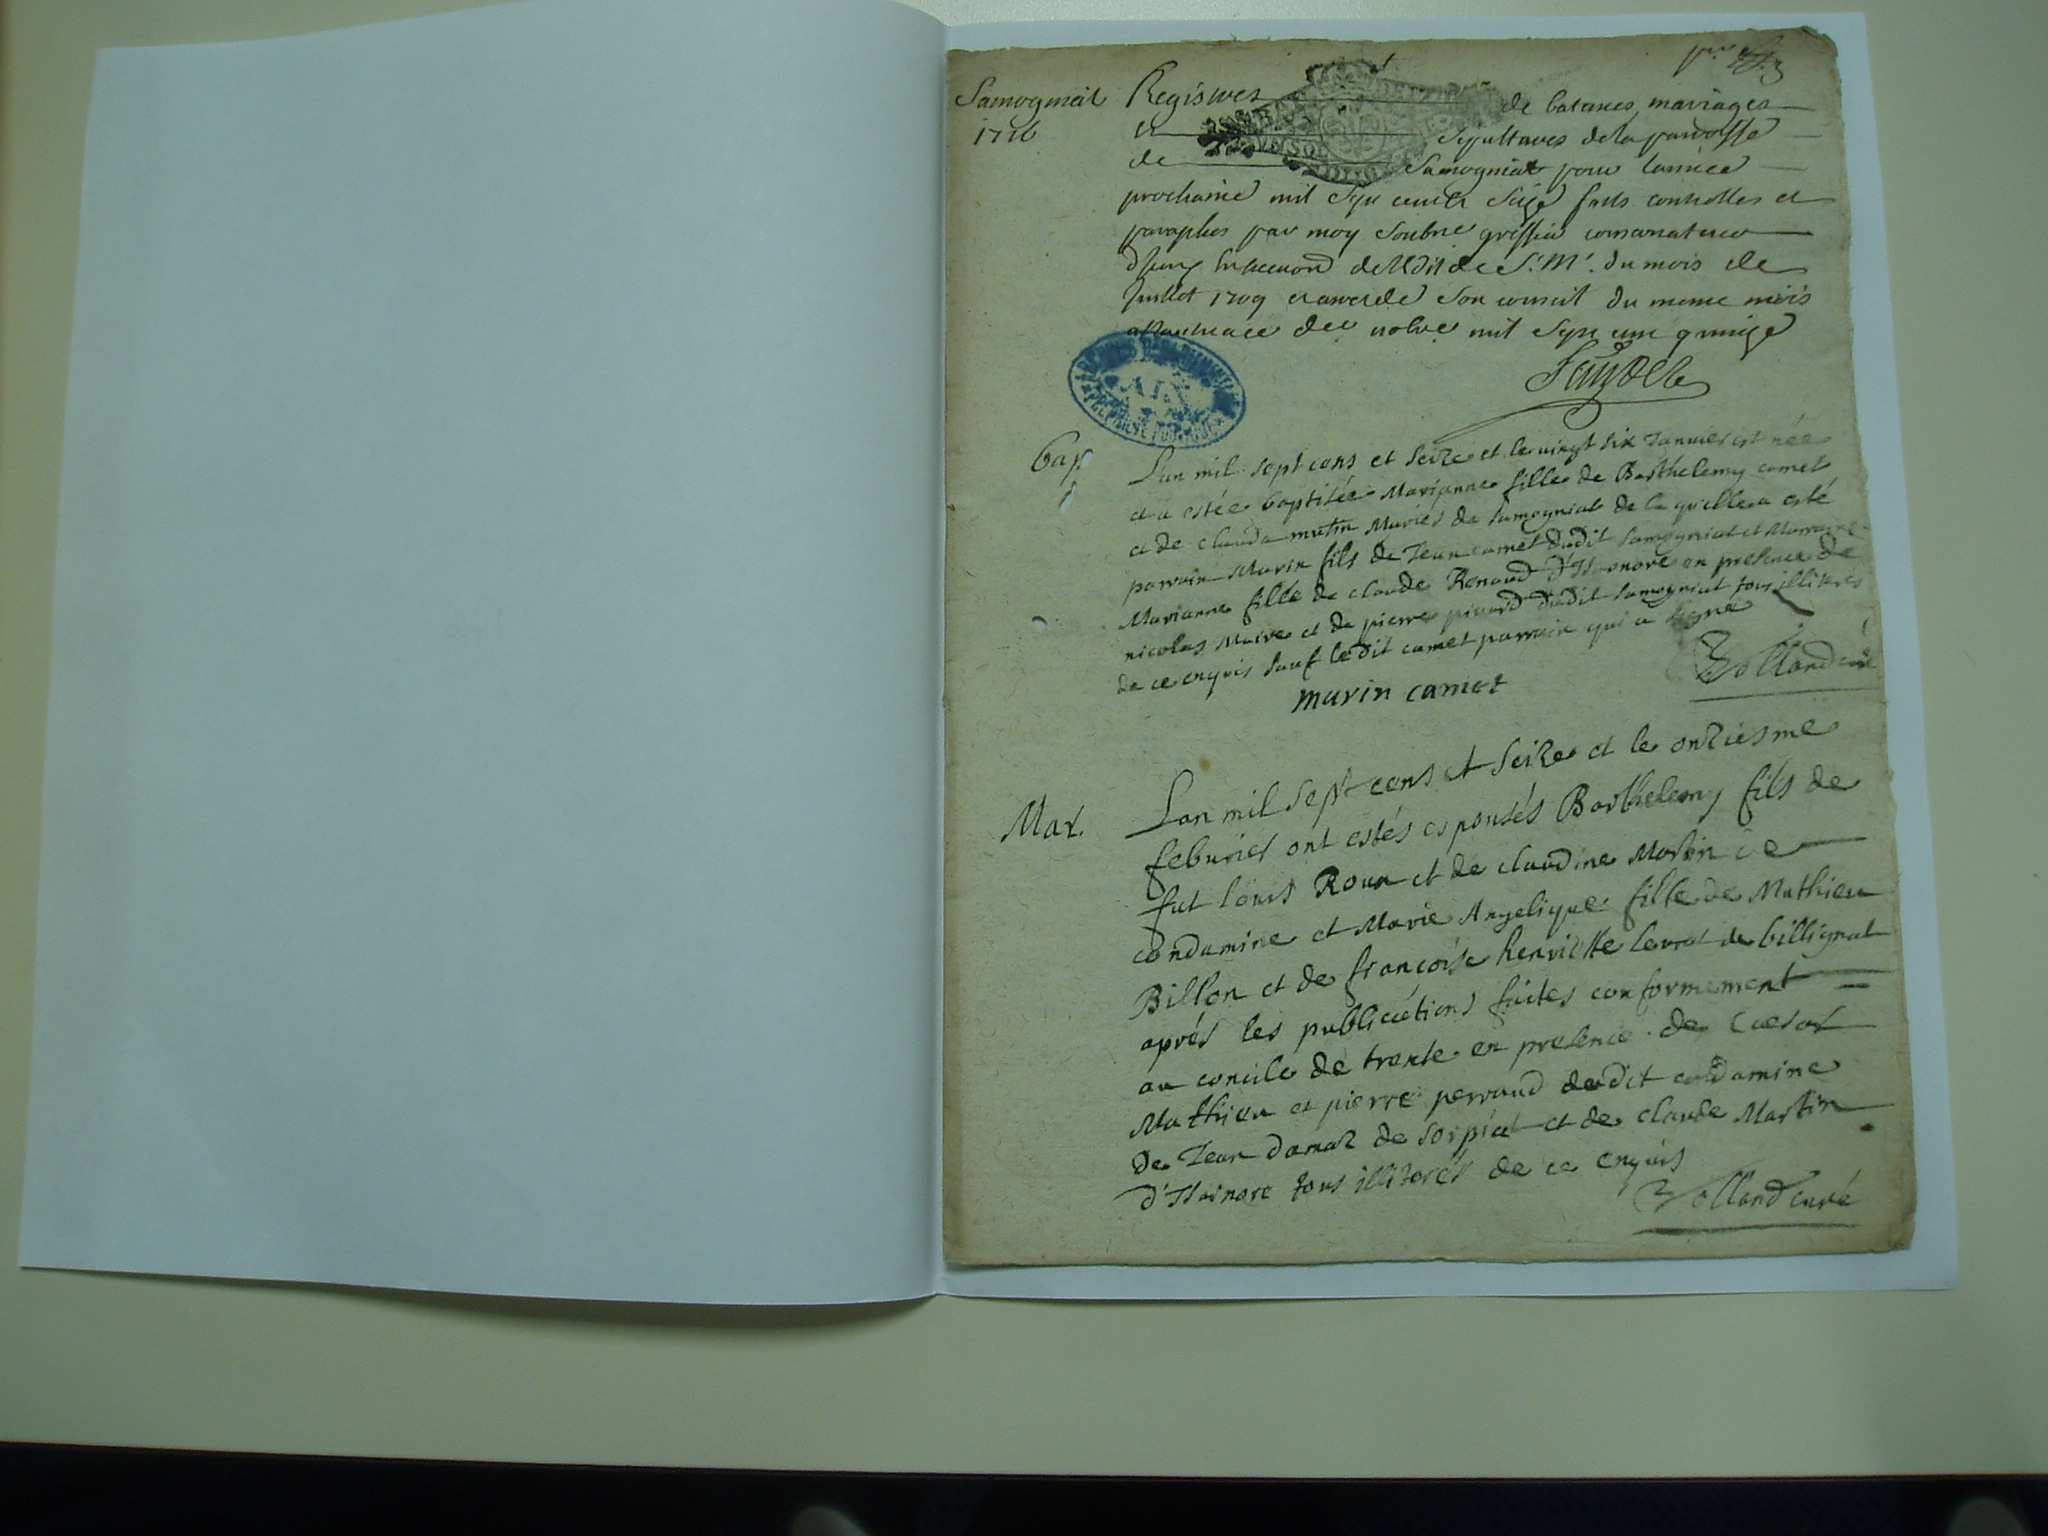 Samogniat
1716
Registres de batemes, mariages
et sepultures de la parroisse
de Samogniat pour lannée
prochaine mil sept cents seize faits controlles et
paraphes par moy soubne greffier conservateur
du mois de
Juillet 1709 et arret de son conseil du meme mois
mil sept cent quinze
Bap
L'an mil sept cens et seize et le vingt six Janvier est née
et a estée baptisée Marianne fille de Barthelemy camet
et de clauda mutin Mariés de samogniat de la quelle a esté
parrain Marin fils de Jean camet dudit samogniat et Marraine
Marianne fille de claude Renaud d'Isernore en presence de
nicolas Maire et de pierre picard dudit samogniat tous illiterés
de ce enquis sauf ledit camet parrain qui a signé
Volland curé
marin camet
Mar.
L'an mil sept cens et seize et le onziesme
feburier ont estés espousés Barthelemy fils de
fut louis Roux et de claudine Morin de
condamine et Marie Angelique fille de Mathieu
Billon et de françoise henriette levrat de billignat
aprés les publications faites conformement
au concile de trente en presence de Cæsar
Mathieu et pierre perraud dudit condamine
De Jean damaz de sorpiat et de claude Martin
d'Isernore tous illiterés de ce enquis
Volland curé